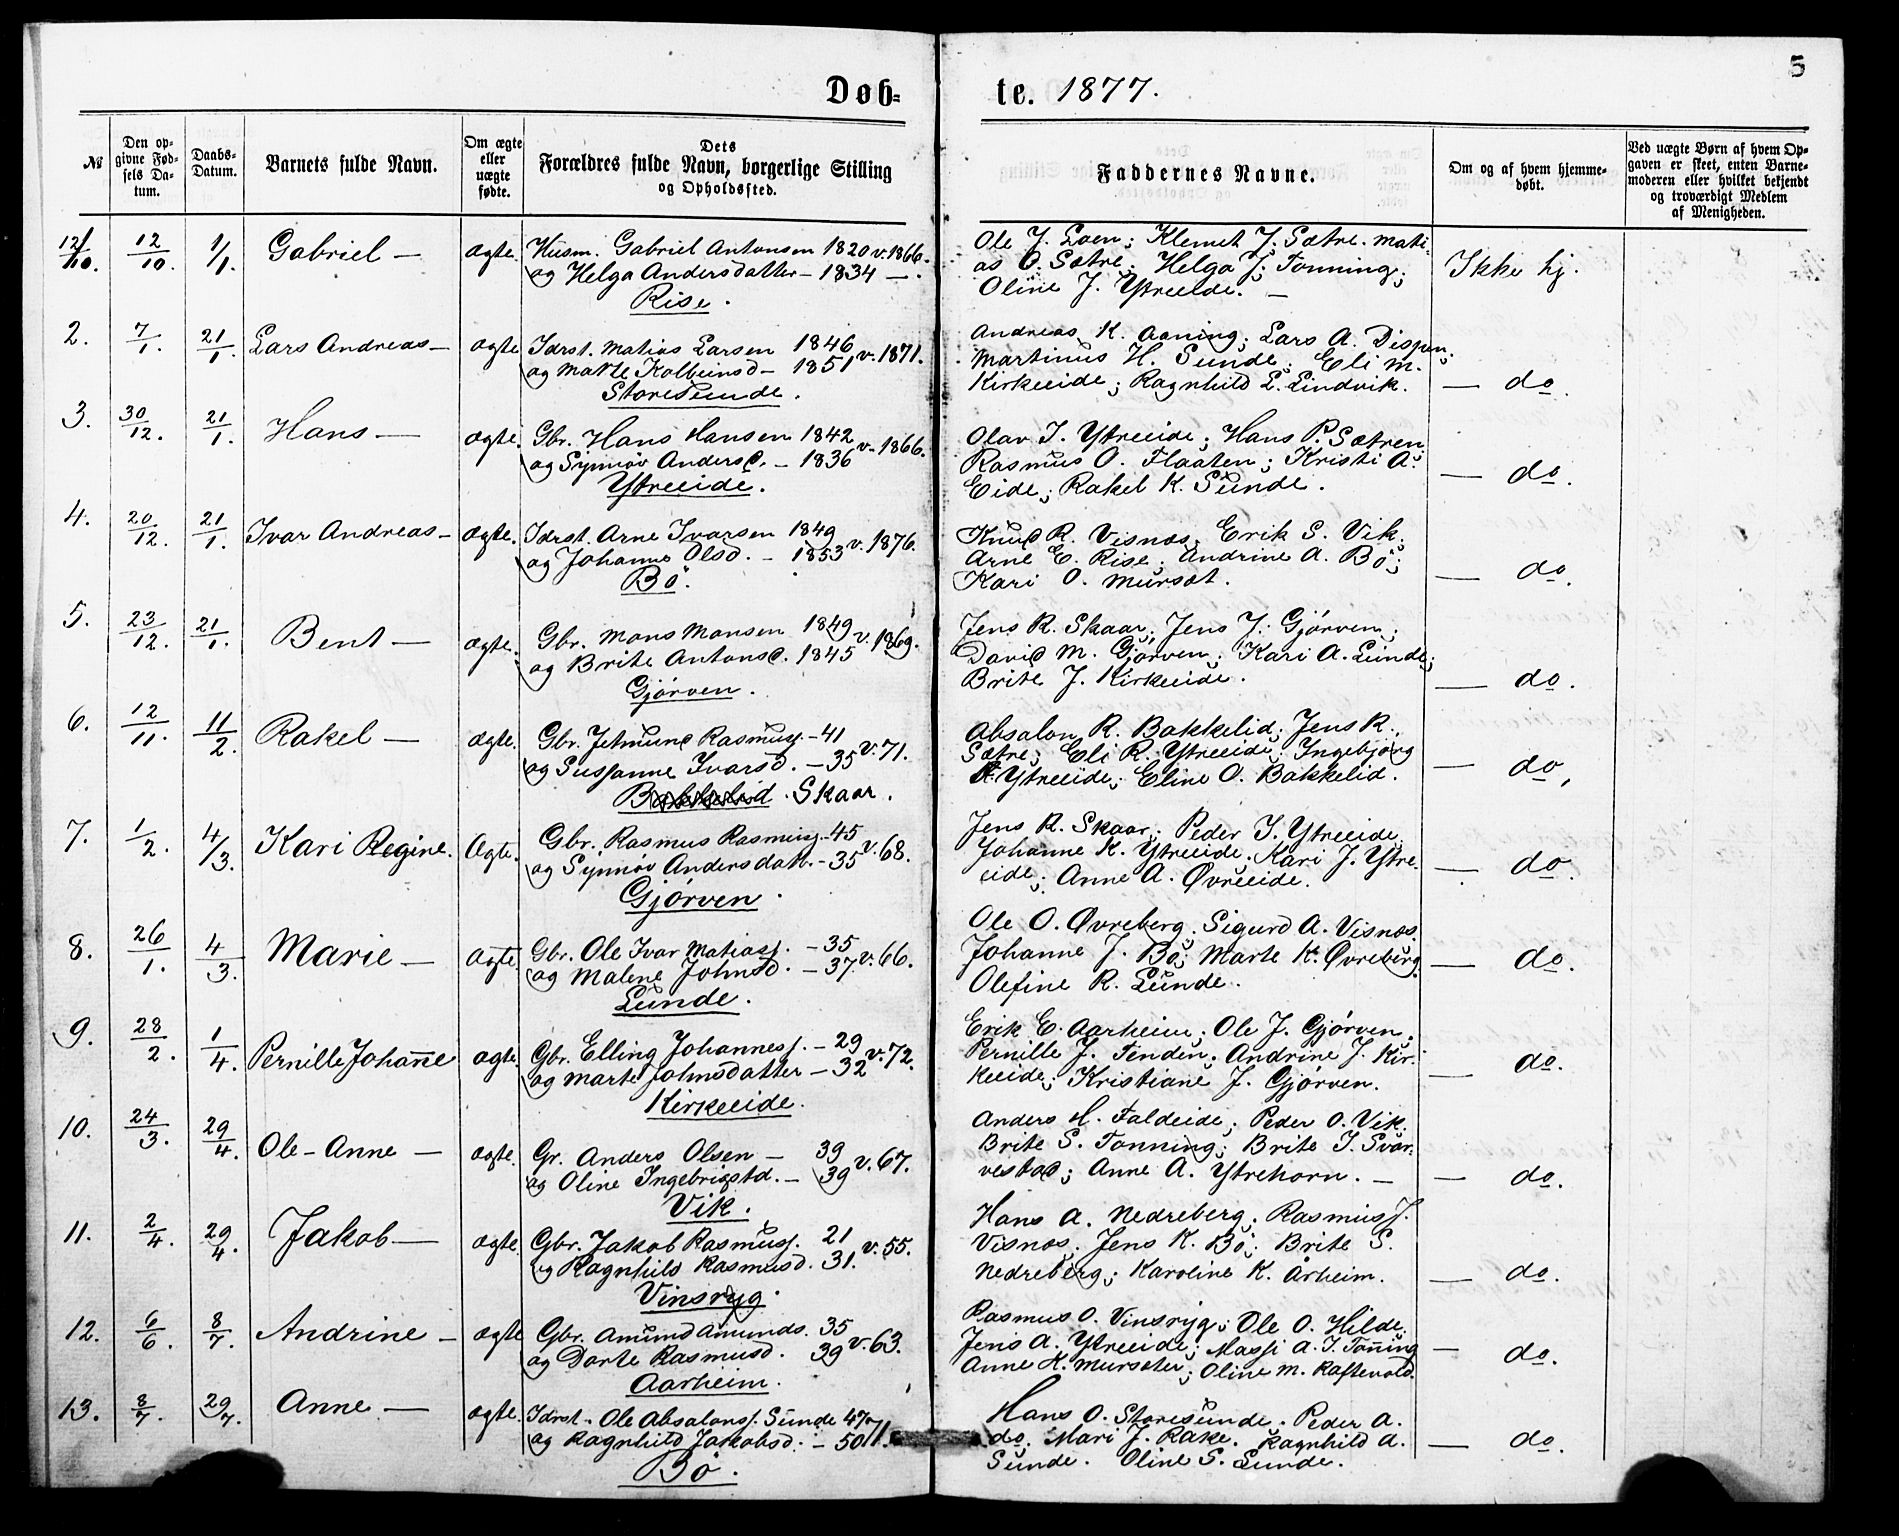 5
Døb-
te. 1877.
№
Den op-
givne Fød-
sels Da-
tum.
Daabs-
Datum.
Barnets fulde Navn.
Om ægte
eller
uægte
fødte.
Dets
Forældres fulde Navn, borgerlige Stilling
og Opholdssted.
Faddernes Navne.
Om og af hvem hjemme-
døbt.
Ved uægte Børn af hvem Op-
gaven er skeet, enten Barne-
moderen eller hvilket bekjendt
og troværdigt Medlem
af Menigheden.
12/10. 1/1. Gabriel — ægte. Husm. Gabriel Antonsen 1820 v. 1866.
og Helga Andersdatter — 1834 —.
Rise.
Ole J. Loen; Klemet J. Sætre. Mati-
as O. Sætre. Helga J. Tonning;
Oline J. Ytreeide. —
Ikke hj.
2. 7/1. 21/1. Lars Andreas — ægte Idrst. Matias Larsen 1846
og Marte Kolbeinsd — 1851 v. 1871.
Storesunde.
Andreas K. Aaning; Lars A. Dispen.
Martinus H. Sunde. Eli M.
Kirkeeide; Ragnhild L. Lindvik.
— do.
3. 30/12. 21/1. Hans — ægte. Gbr. Hans Hansen 1842
og Synnøv Andersd. — 1836 v. 1866.
Ytreeide.
Olav I. Ytreeide; Hans P. Sætren
Rasmus O. Flaaten; Kristi A.
Eide; Rakel K. Sunde.
— do.
4. 20/12. 21/1. Ivar Andreas — ægte. Idrst. Arne Ivarsen 1849
og Johanne Olsd. — 1853 v. 1876.
Bö.
Knud R. Visnæs. Erik S. Vik.
Arne E. Rise; Andrine A. Bö;
Kari O. Mursæt.
— do.
5. 23/12. 21/1. Bent — ægte. Gbr. Mons Monsen 1849
og Brite Antonsd. 1845 v. 1869.
Gjörven.
Jens R. Skaar; Jens J. Gjørven;
David M. Gjörven; Kari A. Lunde;
Brite J. Kirkeeide.
— do.
6. 12/11. 11/2. Rakel — ægte. Gbr. Jetmund Rasmuss. — 41
og Susanne Ivarsd. — 35 v. 71.
Bakkelid. Skaar.
Absalon R. Bakkelid; Jens R.
Sætre; Eli R. Ytreeide; Ingebjörg
Ytreeide; Eline O. Bakkelid.
— do.
7. 1/2. 4/3. Kari Regine. Ægte. Gbr. Rasmus Rasmuss. — 45
og Synnøv Andersdatt. — 35 v. 68.
Gjørven.
Jens R. Skaar; Peder I. Ytreeide.
Johanne K. Ytreeide. Kari J. Ytre-
eide; Anne A. Øvreeide.
— do.
8. 26/1. 4/3. Marie — ægte. Gbr. Ole Ivar Matiass. — 35
og Malene Johnsd. — 37 v. 66.
Lunde.
Ole O. Øvreberg. Sigurd A. Visnæs.
Johanne J. Bö; Marte K. Øvreberg.
Olefine R. Lunde.
— do.
9. 28/2. 1/4. Pernille Johanne ægte. Gbr. Elling Johanness. — 29
og Marte Johnsdatter — 32 v. 72.
Kirkeeide.
Erik E. Aarheim; Ole J. Gjörven;
Pernille J. Tenden; Andrine J. Kir-
keeide; Kristiane J. Gjørven.
— do.
10. 24/3. 29/4. Ole-Anne — ægte. Gr. Anders Olsen — 39
og Oline Ingebrigtsd. — 39 v. 67.
Vik.
Anders H. Faldeide; Peder O. Vik.
Brite S. Tonning; Brite I. Svar-
vestad; Anne A. Ytrehorn. —
— do.
11. 2/4. 29/4. Jakob — ægte. Gbr. Jakob Rasmuss. 21
og Ragnhild Rasmusd. 31. v. 55.
Vinsryg.
Hans A. Nedreberg. Rasmus J.
Visnæs. Jens K. Bö; Brite S.
Nedreberg; Karoline K. Årheim.
— do.
12. 6/6. 8/7. Andrine — ægte Gbr. Amund Amunds. 35
og Dorte Rasmusd. 39 v. 63.
Aarheim.
Rasmus O. Vinsryg; Ole O. Hilde.
Jens A. Ytreeide; Massi A. I. Tonning
Anne K. Mursæter; Oline M. Raftevold.
— do.
13. 8/7. 29/7. Anne — ægte. Idrst. Ole Absalons. Sunde 47
og Ragnhild Jakobsd. — 50 v. 71.
Bö.
Hans O. Storesunde. Peder A.
do. Mari J. Rake. Ragnhild A.
Sunde. Oline S. Sunde.
— do.